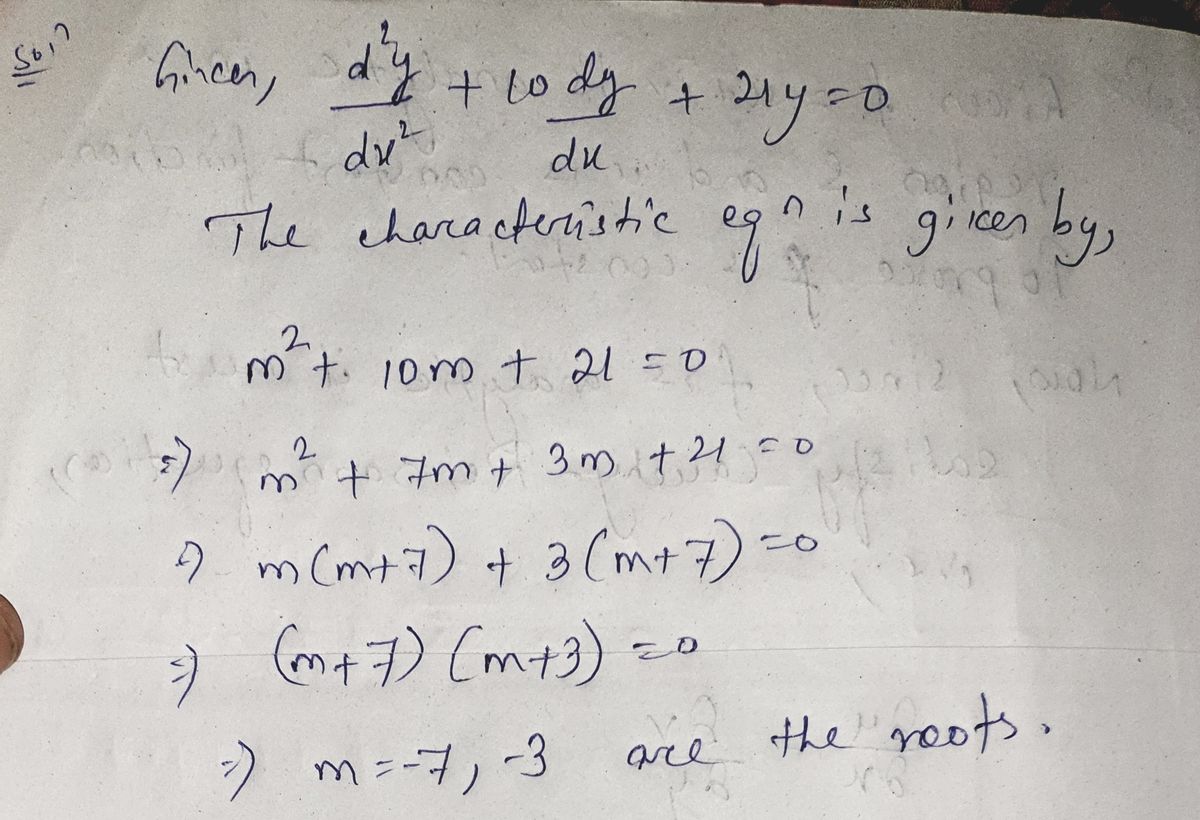 Solⁿ Given, d²y/dx² + 10 dy/dx + 21y = 0
The characteristic eqⁿ is given by,
m² + 10m + 21 = 0
⇒ m² + 7m + 3m + 21 = 0
⇒ m(m+7) + 3(m+7) = 0
⇒ (m+7) (m+3) = 0
⇒ m = -7, -3 are the roots.